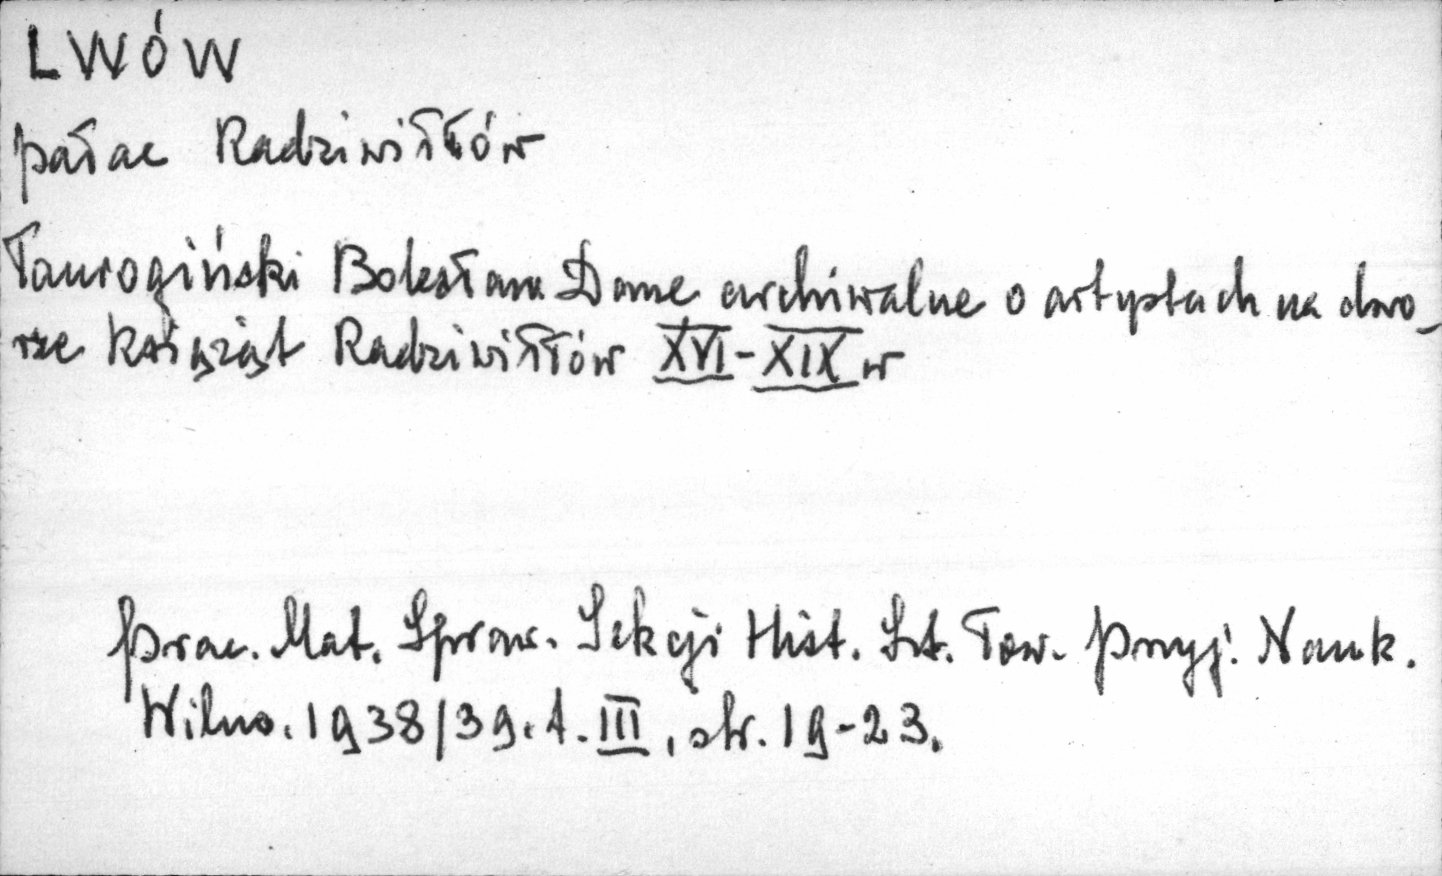 LWÓW
pałac Radziwiłłów
Taurogiński Bolesław Dane archiwalne o artystach na dwo-
rze książąt Radziwiłłów XVI-XIX w
Prac. Mat. Spraw. Sekcji Hist. Szt. Tow. Przyj. Nauk.
Wilno. 1938/39. t. III, str. 19-23.